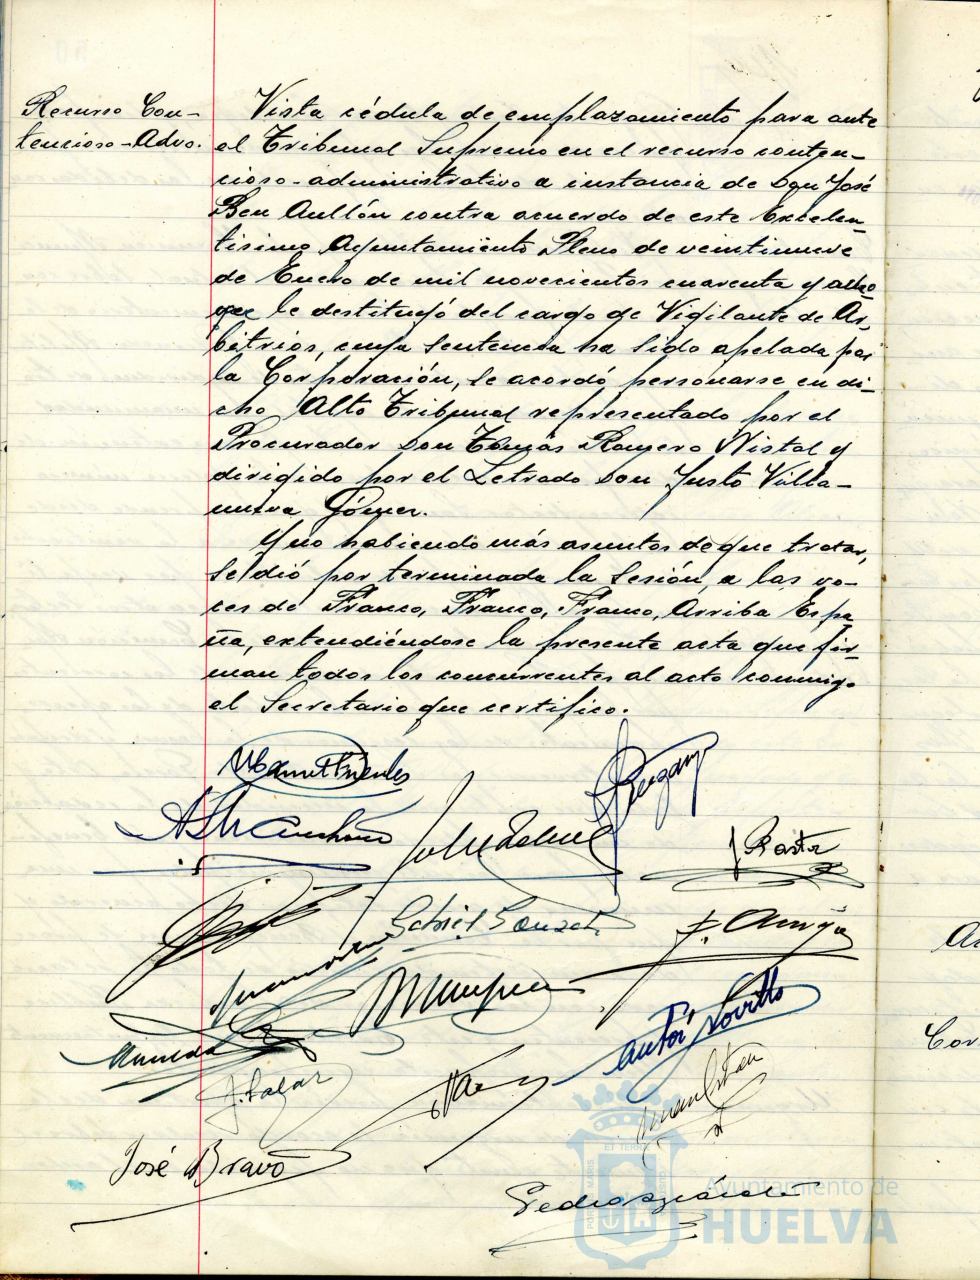 Recurso Con-
tencioso-Advo.
Vista cédula de emplazamiento para ante
el Tribunal Supremo en el recurso conten-
cioso-administrativo a instancia de Don José
Ben Aullón contra acuerdo de este Excelen-
tísimo Ayuntamiento Pleno de veintinueve
de Enero de mil novecientos cuarenta y ocho
que le destituyó del cargo de Vigilante de Ar-
bitrios, cuya sentencia ha sido apelada por
la Corporación, se acordó personarse en di-
cho Alto Tribunal representado por el
Procurador Don Tomás Romero Nistal y
dirigido por el Letrado Don Justo Villa-
nueva Gómez.
Y no habiendo más asuntos de que tratar,
se dió por terminada la sesión, a las vo-
ces de Franco, Franco, Franco, Arriba Espa-
ña, extendiéndose la presente acta que fir-
man todos los concurrentes al acto conmigo
el Secretario que certifico.
J. Salas
José Bravo
ET TERRE
PORTUS MARIS
CUSTODIA
Ayuntamiento de
HUELVA
Cor